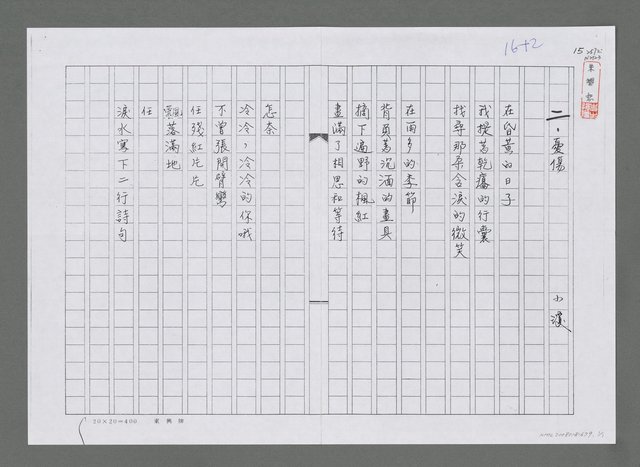 16+2
15
二、憂傷
小漢
在昏黃的日子
我提著乾癟的行囊
找尋那朵含淚的微笑
在雨多的季節
背負著沉湎的畫具
摘下遍野的楓紅
畫滿了相思和等待
怎奈
冷冷,冷冷的你哦
不曾張開臂彎
任殘紅片片
飄落滿地
任
淚水寫下二行詩句
20×20=400